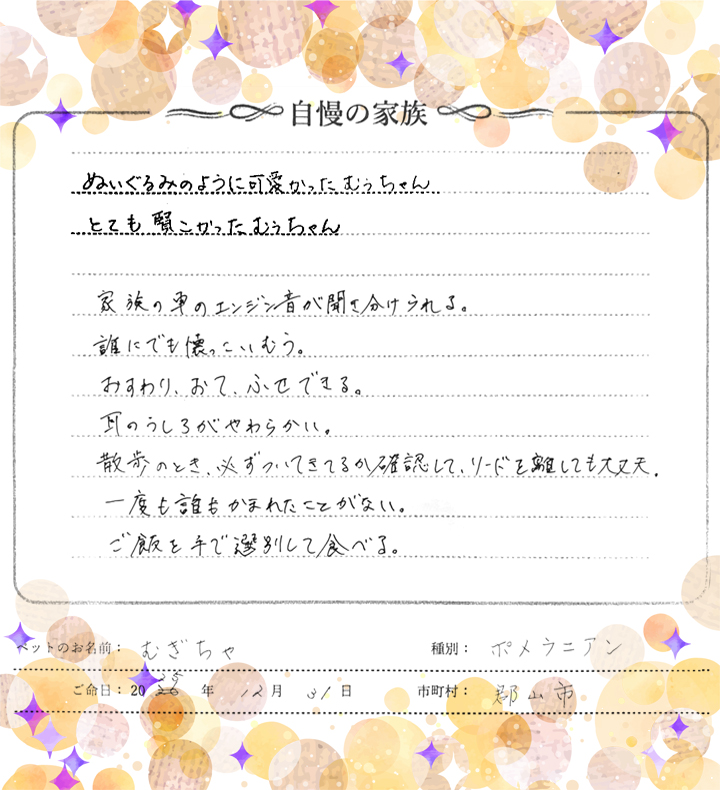 自慢の家族
ぬいぐるみのように可愛かったむぅちゃん
とても賢こかったむぅちゃん
家族の車のエンジン音が聞き分けられる。
誰にでも懐っこいむう。
おすわり、おて、ふせできる。
耳のうしろがやわらかい。
散歩のとき、必ずついてきてるか確認して、リードを離しても大丈夫。
一度も誰もかまれたことがない。
ご飯を手で選別して食べる。
ペットのお名前： むぎちゃ 種別： ポメラニアン
ご命日：20 25 年 12 月 31 日 市町村： 郡山市